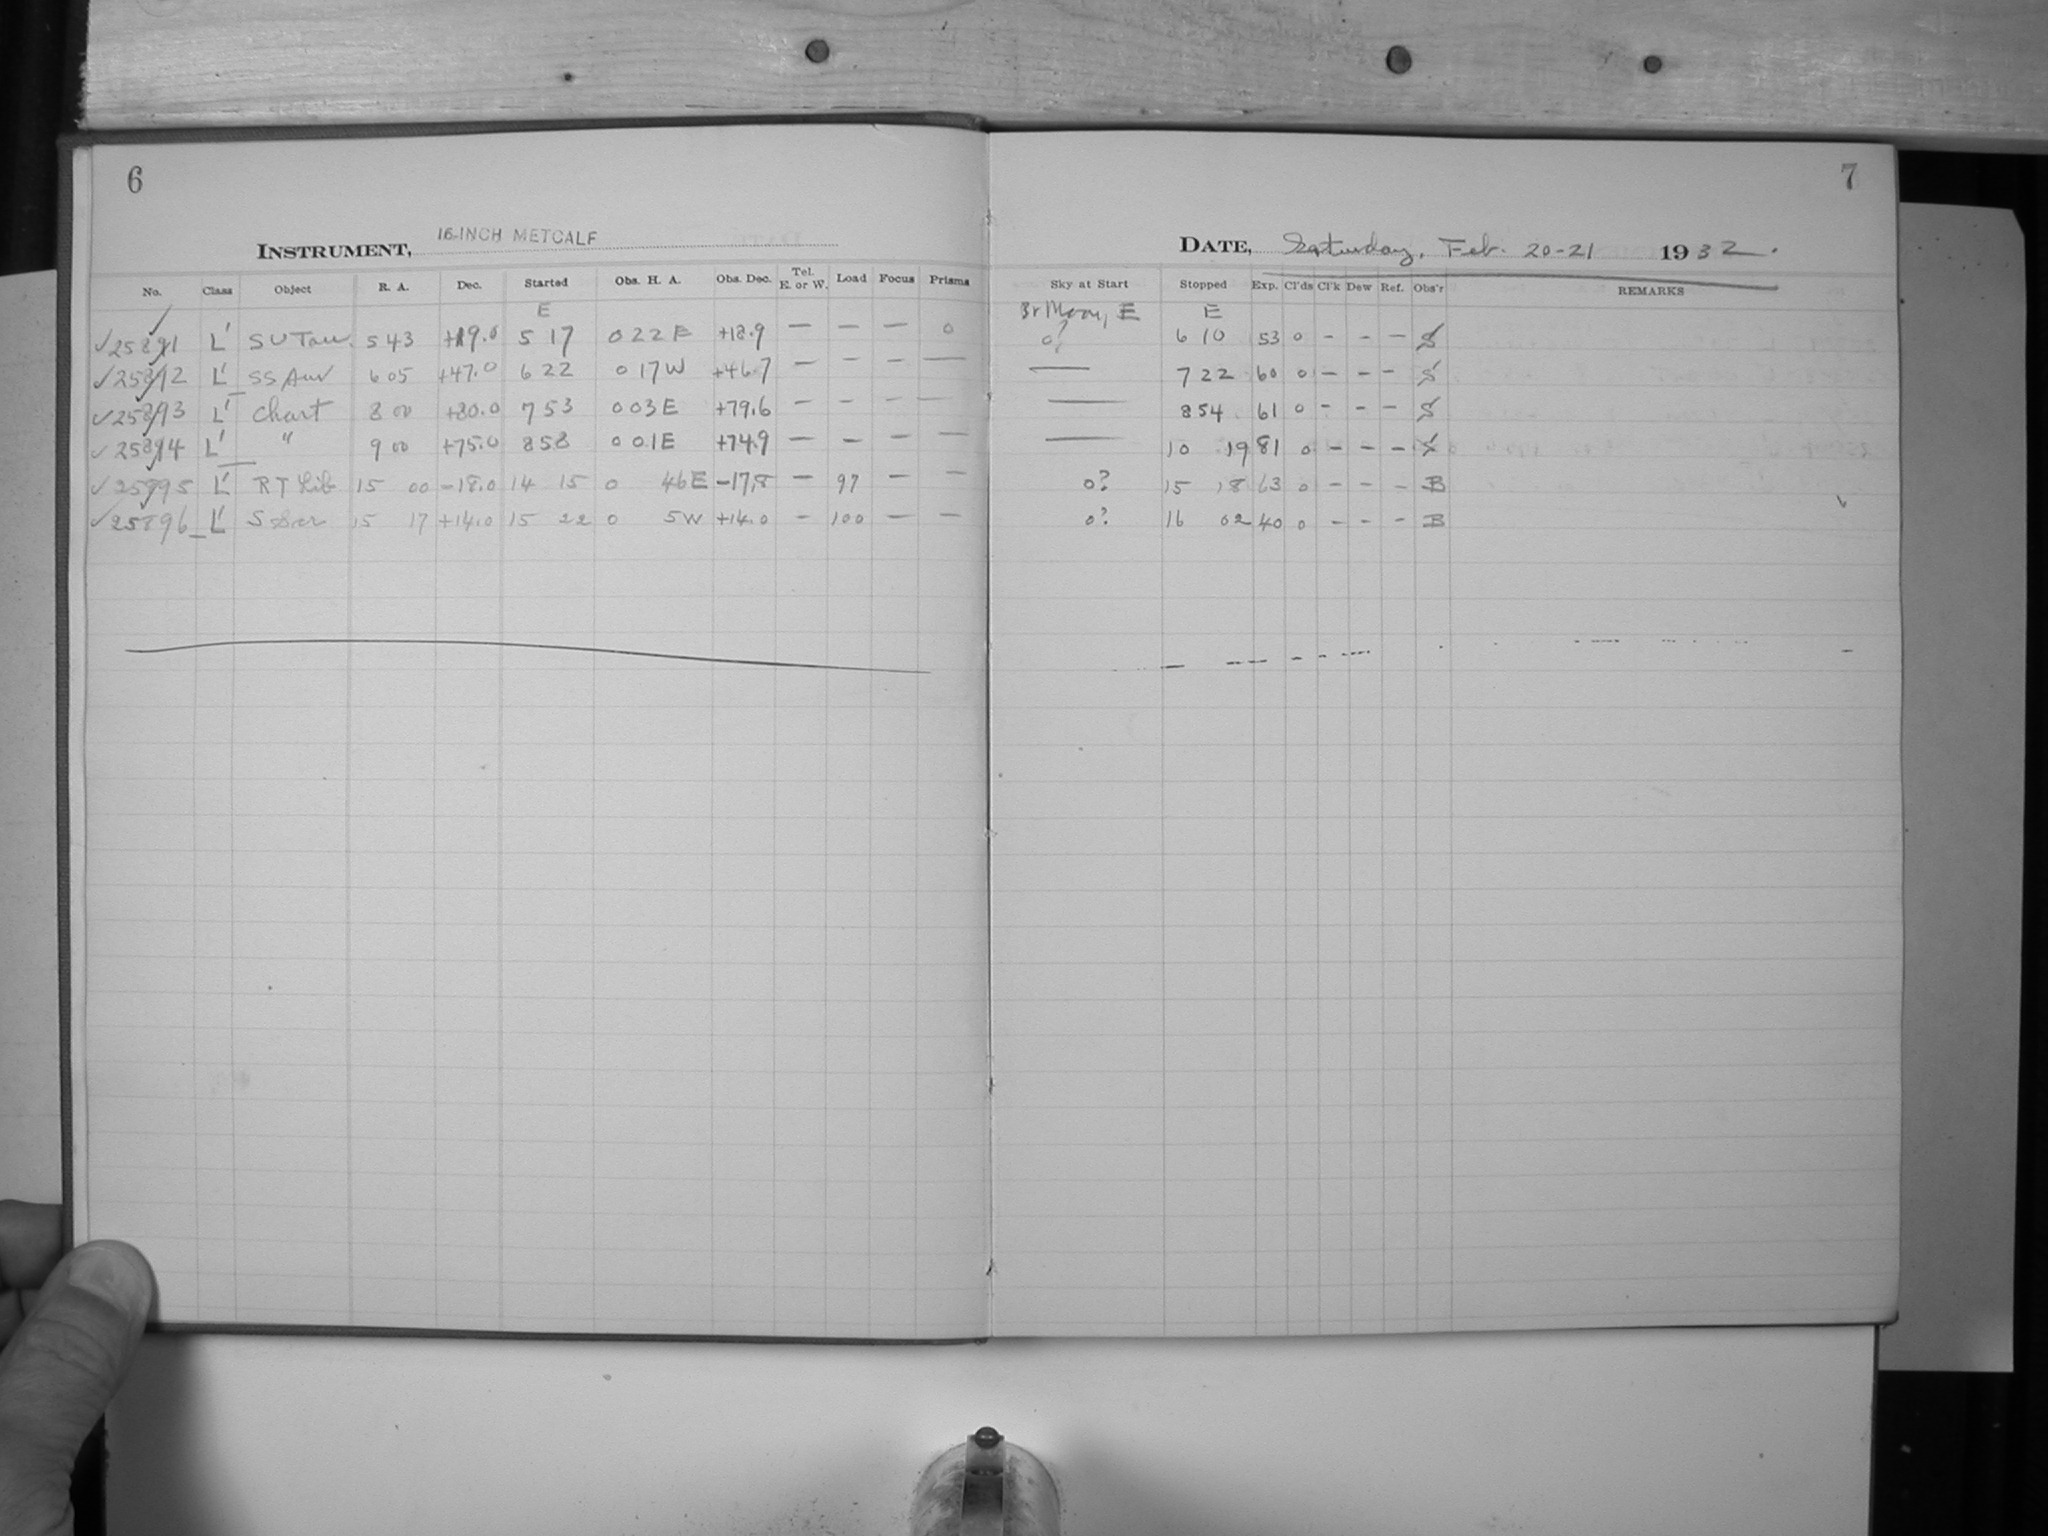 6
INSTRUMENT, 16-INCH METCALF
No. Class Object R. A. Dec. Started Obs. H. A. Obs. Dec. Tel. E. or W. Load Focus Prisms
E
✓25891 L' SU Tau. 5 43 +19.0 5 17 0 22 E +18.9 — — — 0
✓25892 L' SS Aur 6 05 +47.0 6 22 0 17 W +46.7 — — — —
✓25893 L' Chart 8 00 +80.0 7 53 0 03 E +79.6 — — — —
✓25894 L' " 9 00 +75.0 8 58 0 01 E +74.9 — — — —
✓25895 L' RT Lib 15 00 -18.0 14 15 0 46 E -17.8 — 97 — —
✓25896 L' S Ser 15 17 +14.0 15 22 0 5 W +14.0 — 100 — —
7
DATE, Saturday, Feb. 20-21 1932.
Sky at Start Stopped Exp. Cl'ds Cl'k Dew Ref. Obs'r REMARKS
Br Moon, E E
0? 6 10 53 0 - - - S
— 7 22 60 0 - - - S
— 8 54 61 0 - - - S
— 10 19 81 0 - - - S
0? 15 18 63 0 - - - B
0? 16 02 40 0 - - - B